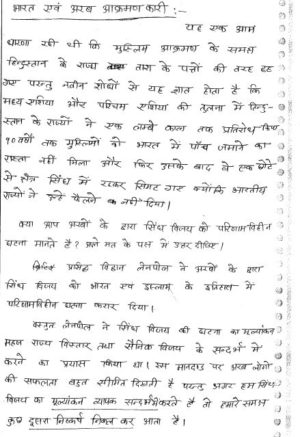 भारत एवं अरब आक्रमणकारी :-
यह एक आम
धारणा रही थी कि मुस्लिम आक्रमण के समक्ष
हिन्दुस्तान के राज्य ताश के पत्तों की तरह ढह
गए परन्तु नवीन शोधों से यह ज्ञात होता है कि
मध्य एशिया और पश्चिम एशिया की तुलना में हिन्दु-
स्तान के राज्यों ने एक लम्बे काल तक प्रतिरोध किया
वर्षों तक मुस्लिमों को भारत में पाँव जमाने का
रास्ता नहीं मिला और फिर उसके बाद वे एक छोटे
से क्षेत्र सिंध में रहकर सिमट गए क्योंकि भारतीय
राज्यों ने उन्हें फैलने नहीं दिया।
क्या आप अरबों के द्वारा सिंध विजय को परिणामविहीन
घटना मानते हैं? अपने मत के पक्ष में उत्तर दीजिए।
प्रसिद्ध विद्वान लेनपोल ने अरबों के द्वारा
सिंध विजय को भारत एवं इस्लाम के इतिहास में
परिणामविहीन घटना करार दिया।
वस्तुत लेनपोल ने सिंध विजय की घटना का मूल्यांकन
महज राज्य विस्तार तथा सैनिक विजय के सन्दर्भ में
करने का प्रयास किया था। इस मानदण्ड पर अरब लोगों
की सफलता बहुत सीमित दिखती है परन्तु अगर हम सिंध
विजय का मूल्यांकन व्यापक सन्दर्भ में करते हैं तो हमारे समक्ष
कुछ दूसरा निष्कर्ष निकल कर आता है।